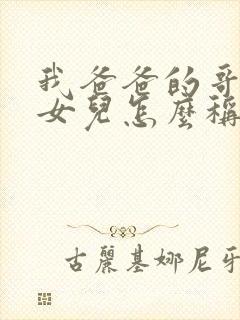 我爸爸的哥
女兒怎麼稱
古麗基娜尼牙